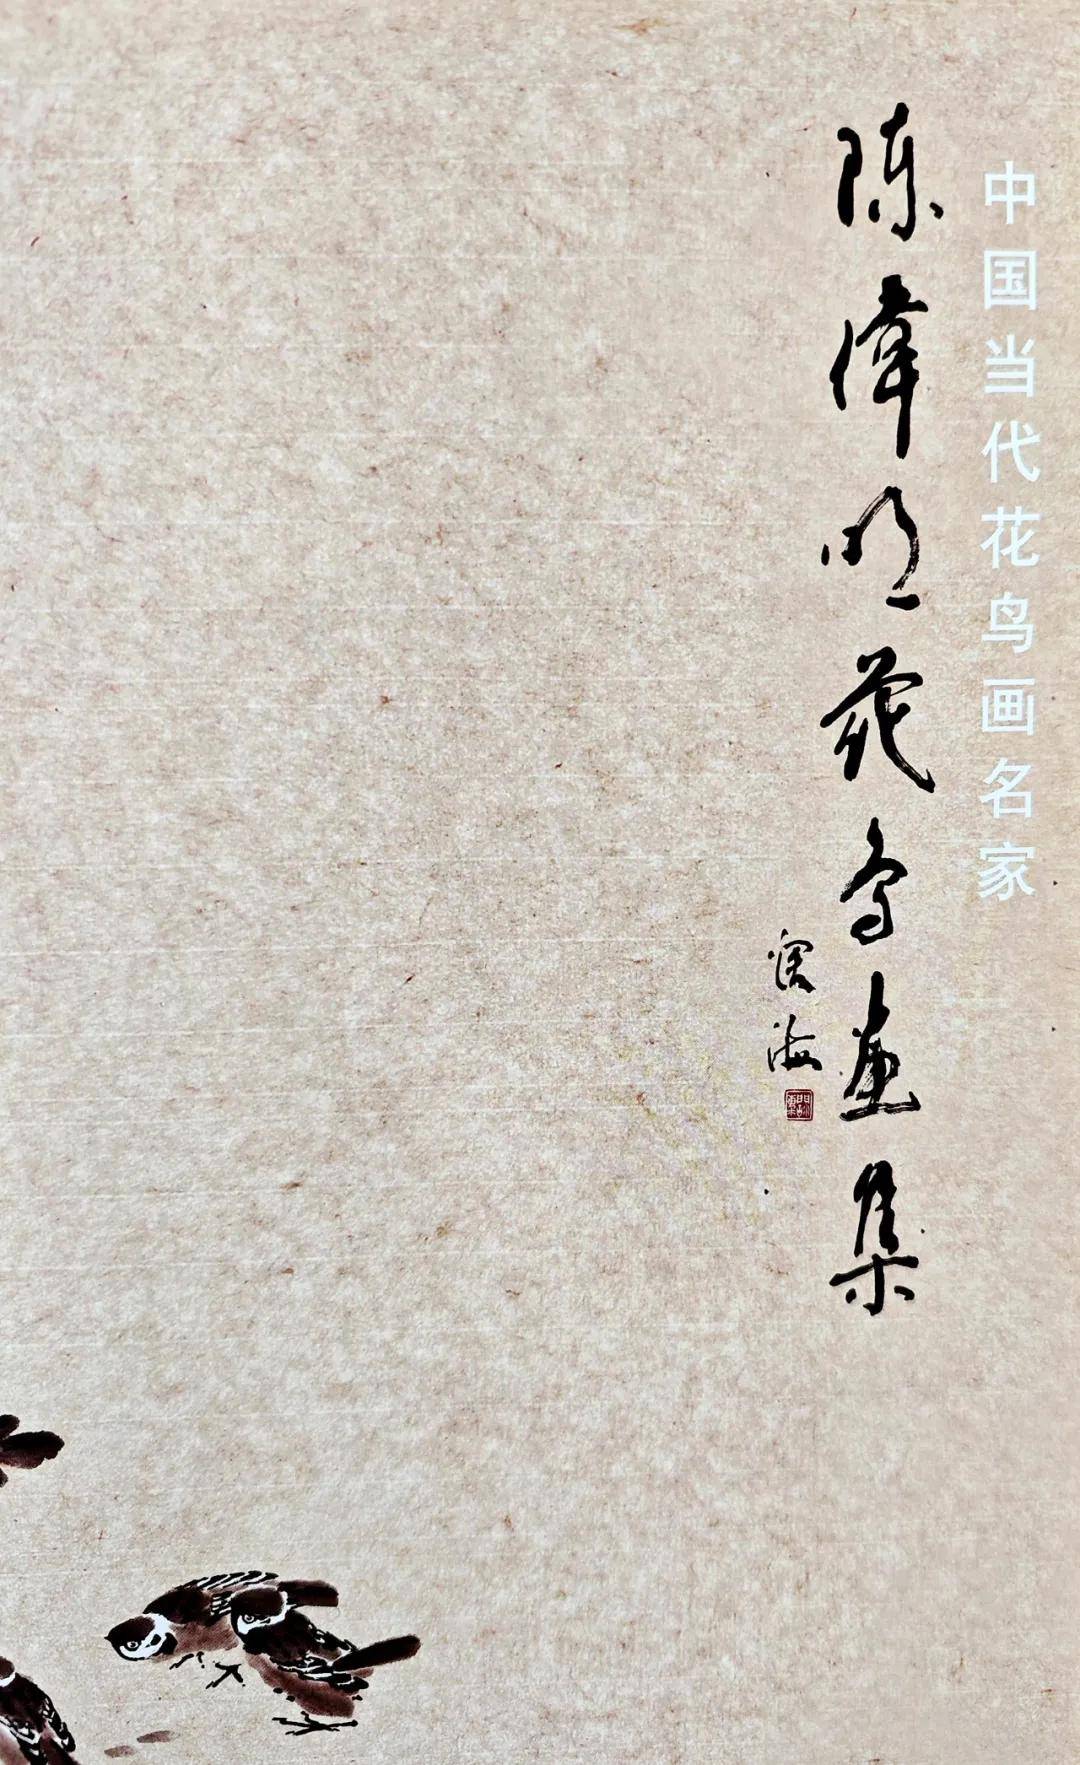 中国当代花鸟画名家
陈偉明花鸟画集